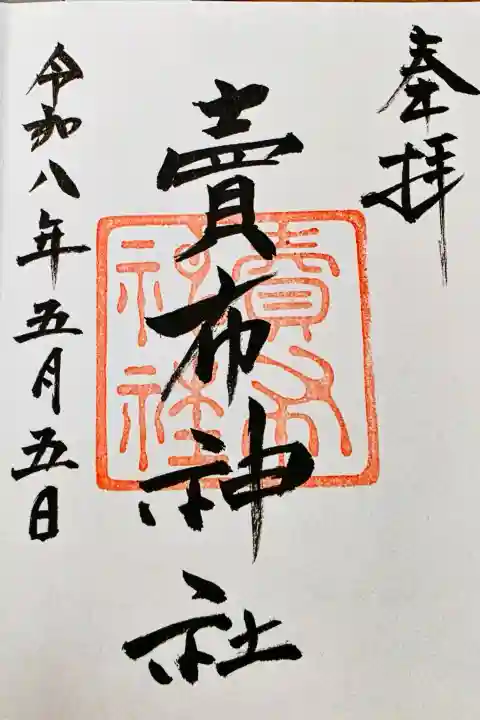 奉拝
賣布神社
賣布
神社
令和八年五月五日